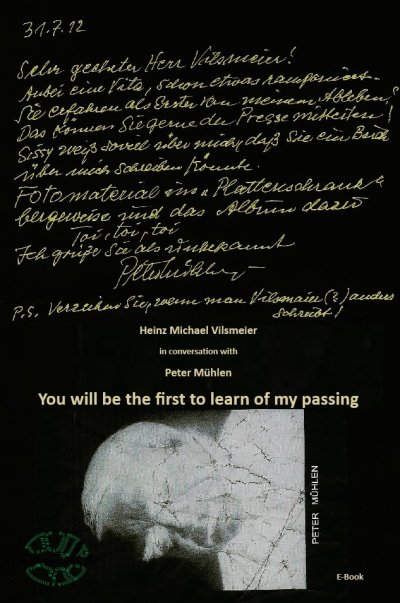 31.7.12
Sehr geehrter Herr Vilsmeier!
Anbei eine Vita, schon etwas ramponiert.
Sie erfahren als Erster von meinem Ableben.
Das können Sie gerne der Presse mitteilen!
Sissy weiß soviel über mich, daß Sie ein Buch
über mich schreiben könnte.
Fotomaterial ins "Plattenschrank"
bergeweise und das Album dazu
Toi, toi, toi
Ich grüße Sie als unbekannt
P.S. Verzeihen Sie, wenn man Vilsmaier (?) anders
schreibt!
Heinz Michael Vilsmeier
in conversation with
Peter Mühlen
You will be the first to learn of my passing
PETER MÜHLEN
E-Book